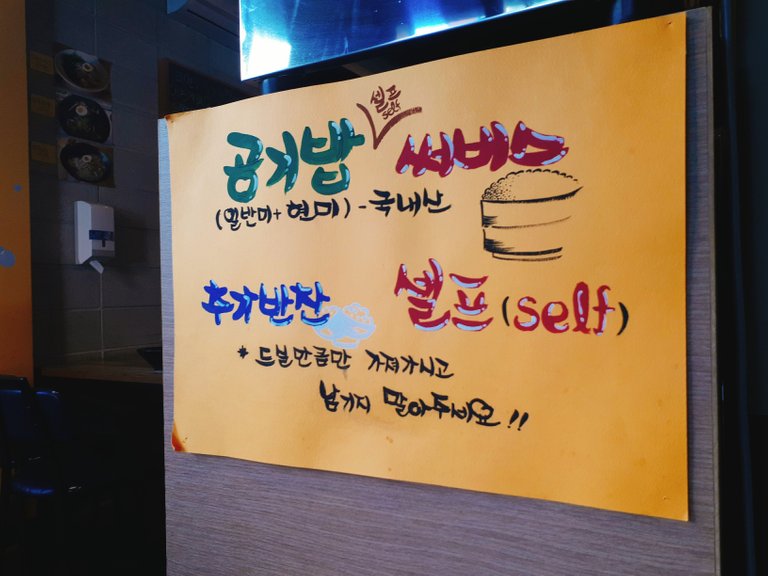 셀프
self
공기밥 써비스
(일반미+현미)-국내산
추가반찬 셀프(self)
* 드실만큼만 가져가시고
남기지 말아주세요!!